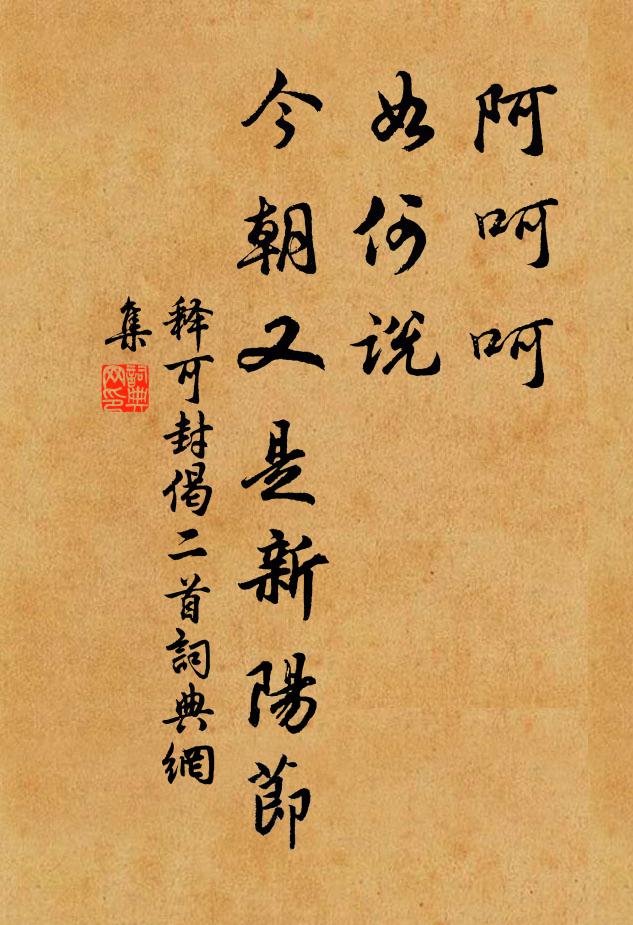 阿呵呵
如何说
今朝又是新陽節
释可封偈二首詞典網
集
詞典网印